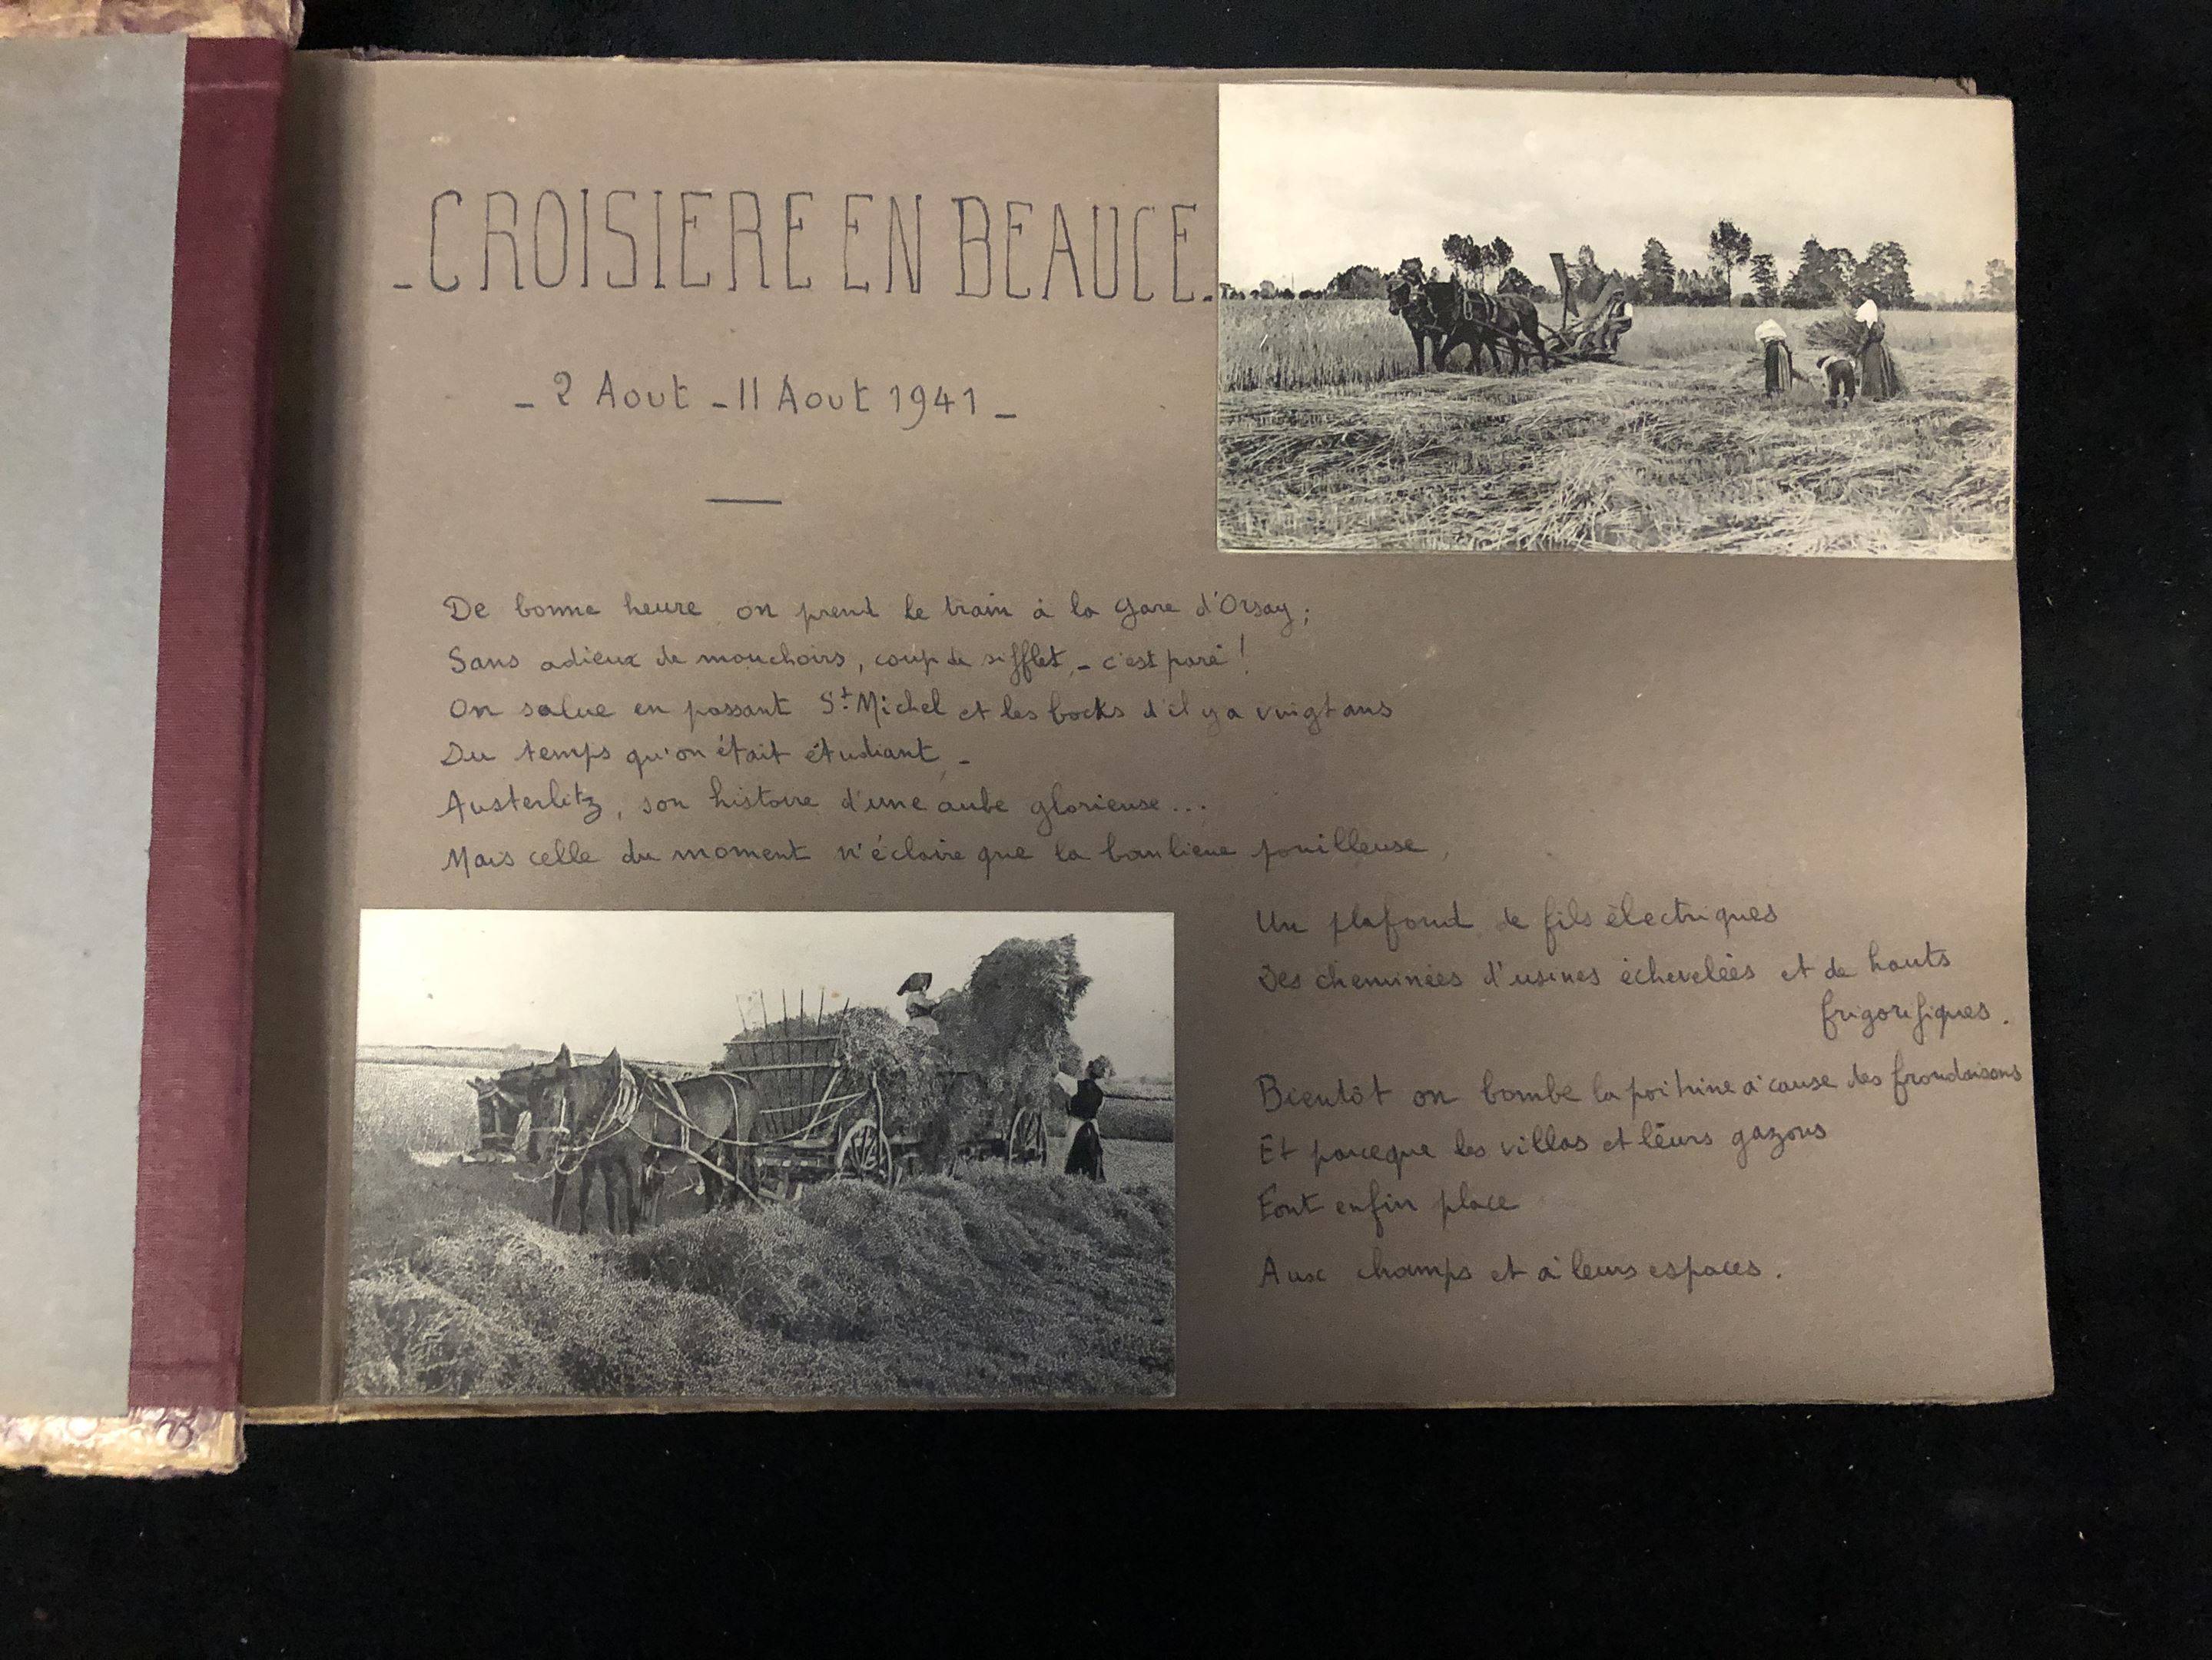 - CROISIERE EN BEAUCE.
- 2 Aout - 11 Aout 1941 -
De bonne heure on prend le train à la Gare d'Orsay ;
Sans adieux de mouchoirs, coup de sifflet, - c'est paré !
On salue en passant St Michel et les bocks d'il y a vingt ans
Du temps qu'on était étudiant -
Austerlitz, son histoire d'une aube glorieuse...
Mais celle du moment n'éclaire que la banlieue pouilleuse,
Un plafond de fils électriques
Des cheminées d'usines échevelées et de hauts
frigorifiques.
Bientôt on bombe la poitrine à cause des frondaisons
Et parceque les villas et leurs gazons
Font enfin place
Aux champs et à leurs espaces.